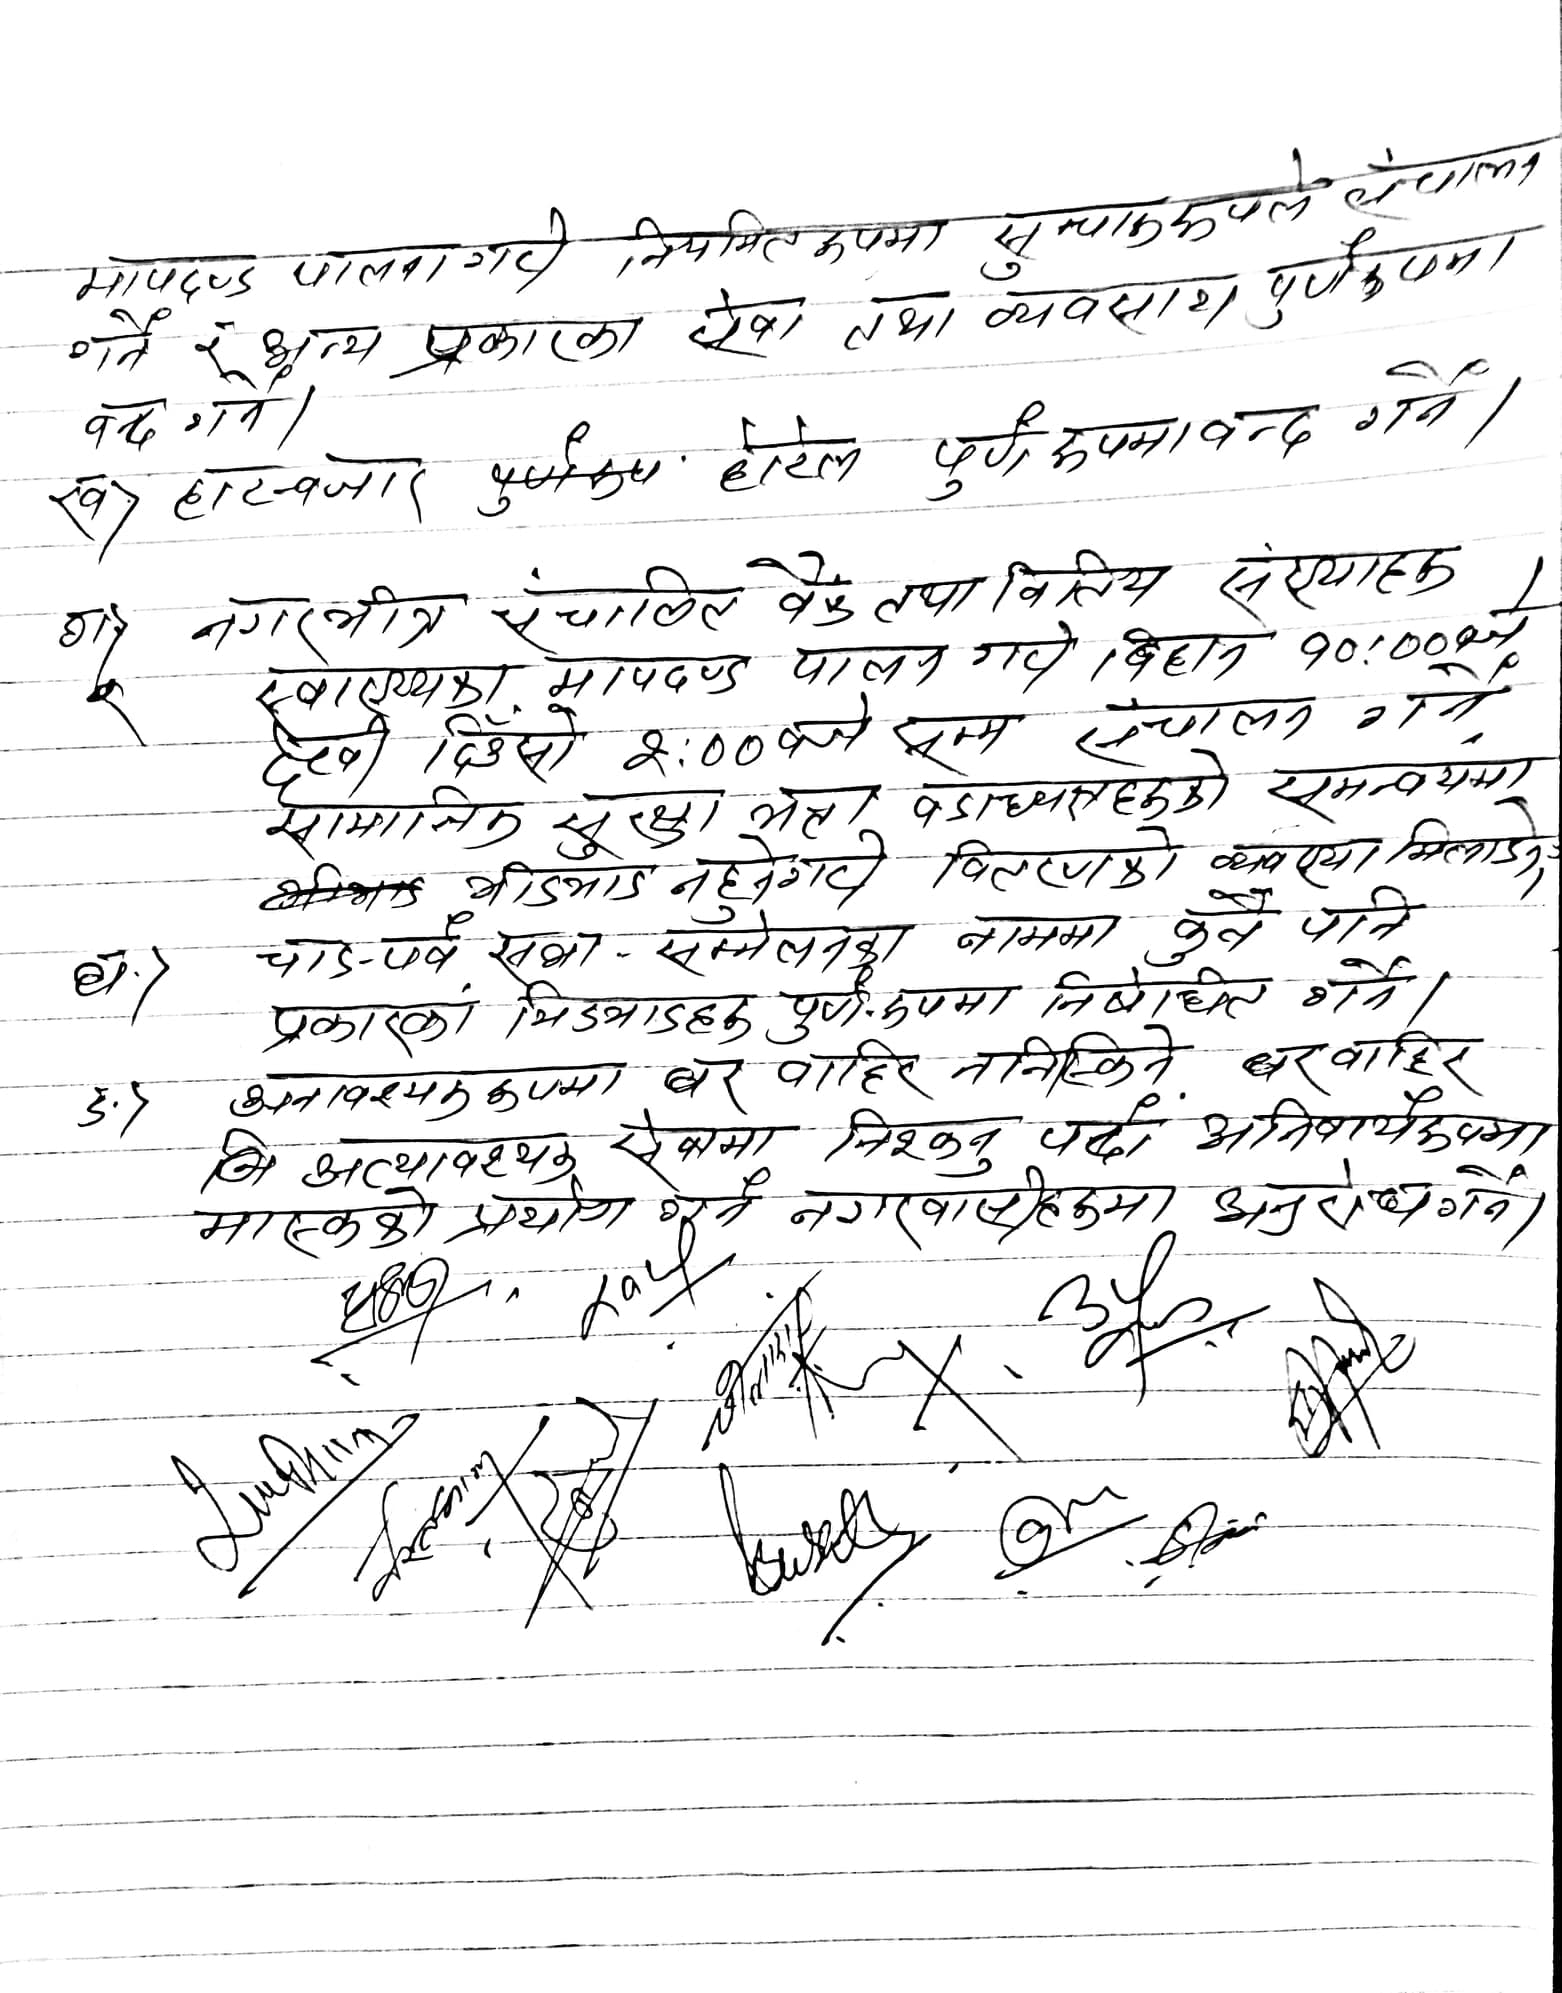 मापदण्ड पालना गर्दा नियमित रुपमा सुचारुरुपले संचालन
गर्ने र अन्य प्रकारका सेवा तथा व्यवसाय पुर्णरुपमा
वन्द गर्ने।
ख) हाट-बजार पुर्णरुप होटेल पुर्ण रुपमा वन्द गर्ने।
ग) नगरभीत्र संचालित बैंक तथा वित्तिय संस्थाहरु
स्वास्थ्यका मापदण्ड पालन गर्दा बिहान १०:०० बजे
देखी दिउँसो २:०० बजे सम्म संचालन गर्ने,
सामाजिक सुरक्षा भत्ता वडाध्यक्षहरुको समन्वयमा
भीडभाड नहुनेगरी वितरणको व्यवस्था मिलाउने,
घ.) चाड-पर्व सभा-सम्मेलनका नाममा कुनै पनि
प्रकारका भिडभाडहरु पुर्ण-रुपमा निषेधित गर्ने।
ङ.) अनावश्यक रुपमा घर वाहिर ननिस्किने, घर वाहिर
अत्यावश्यक सेवामा निश्कनु पर्दा अनिवार्यरुपमा
मास्कको प्रयोग गर्न नगरवासीहरुमा अनुरोध गर्ने।